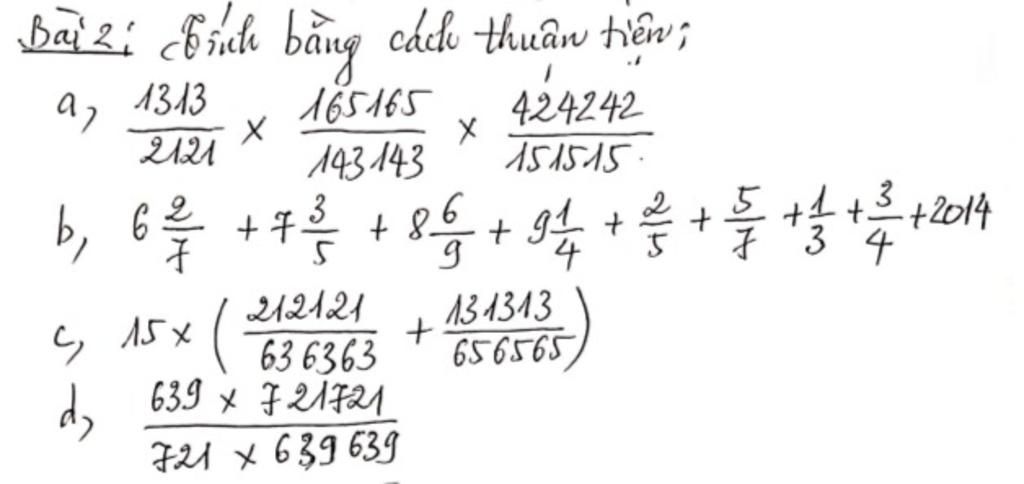 Bài 2: Tính bằng cách thuận tiện;
a, 1313/2121 × 165165/143143 × 424242/151515.
b, 6 2/7 + 7 3/5 + 8 6/9 + 9 1/4 + 2/5 + 5/7 + 1/3 + 3/4 + 2014
c, 15 × ( 212121/636363 + 131313/656565 )
d, 639 × 721721 / 721 × 639639